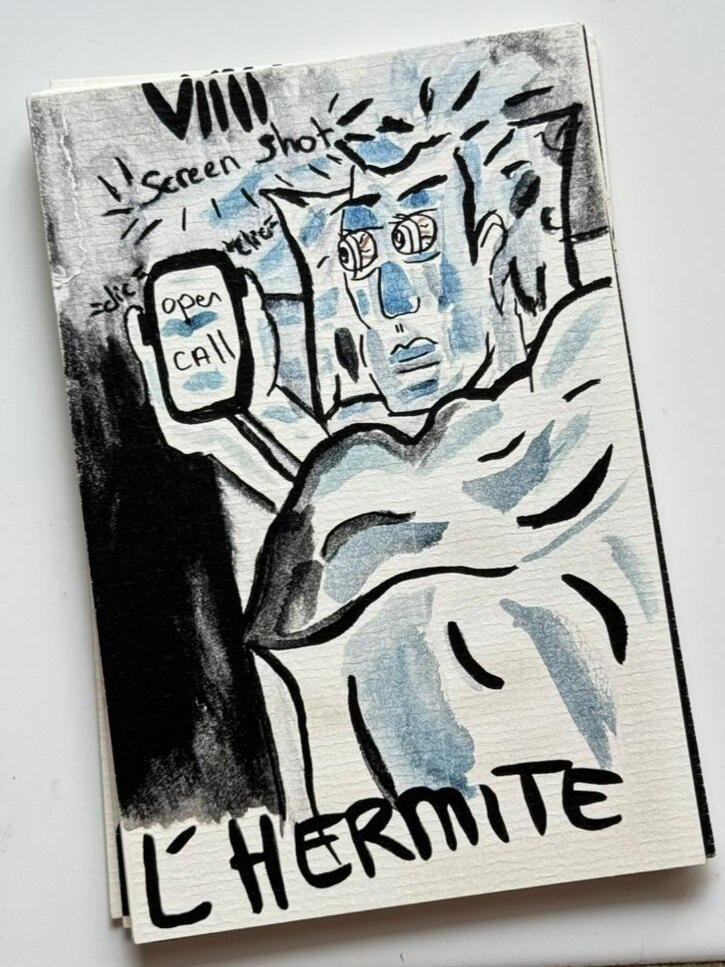 VIIII
Screen shot
=clic=
=clic=
open
CAll
L'HERMITE